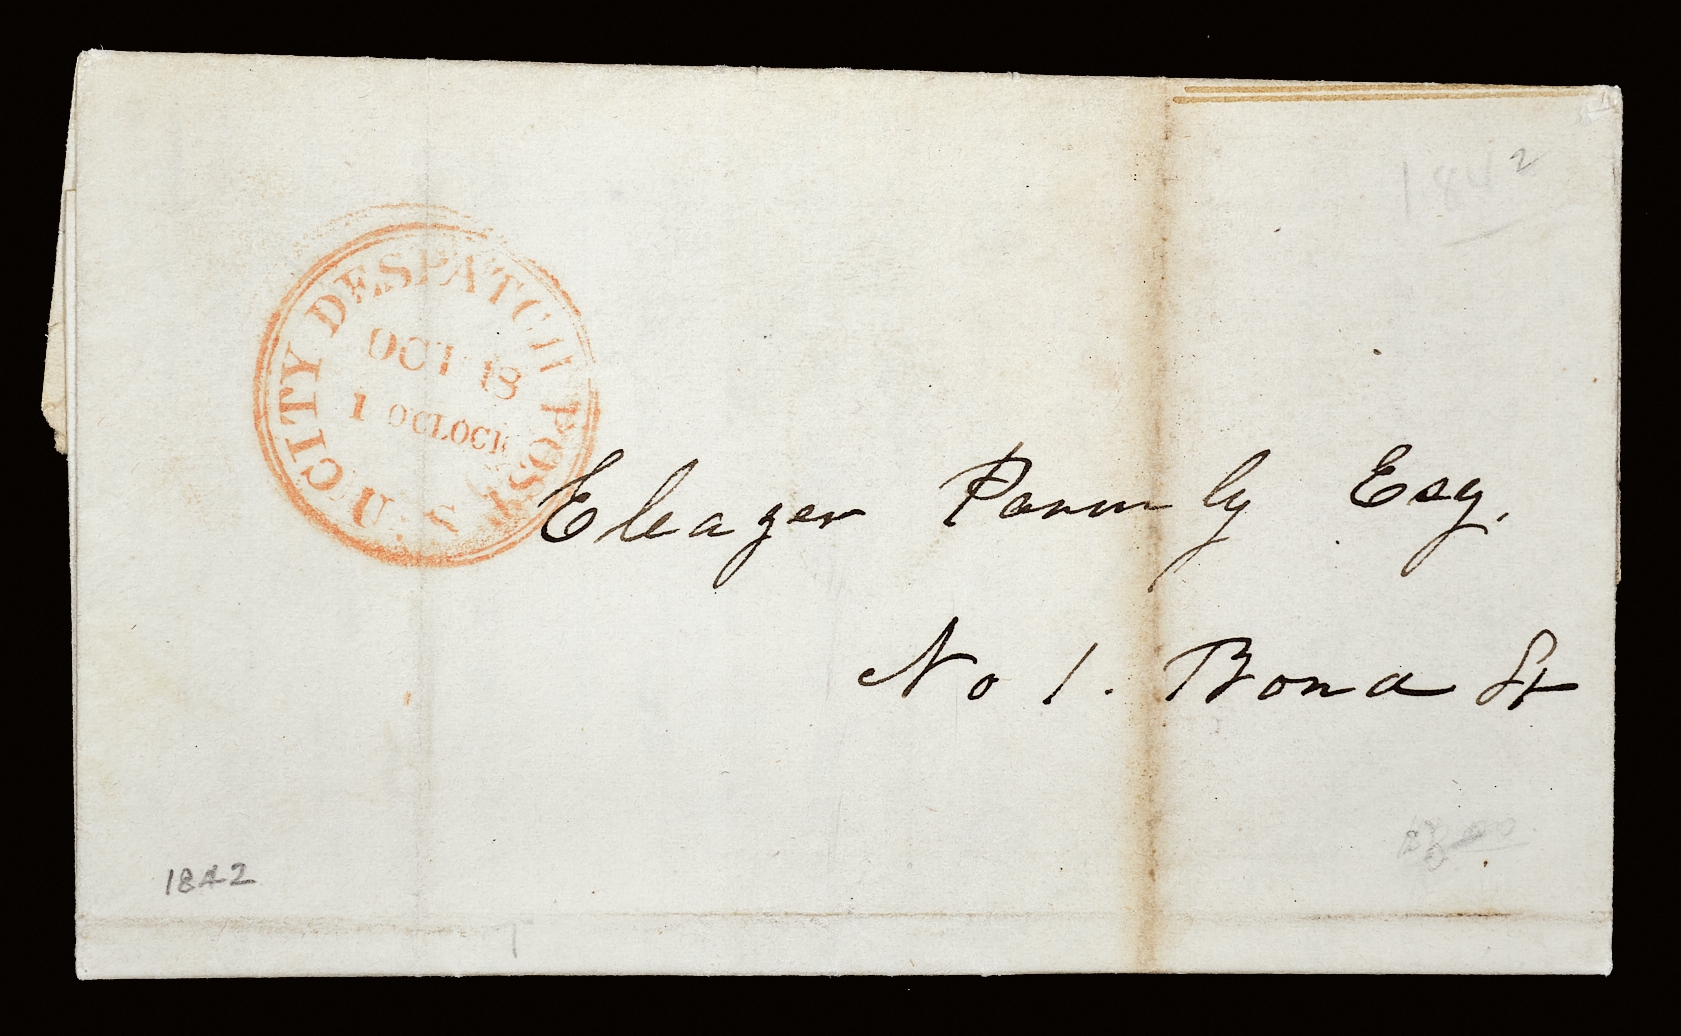 1842
U.S. CITY DESPATCH POST
OCT 18
1 OCLOCK
Eleazer Parmly Esq.
No 1. Bond St
1842